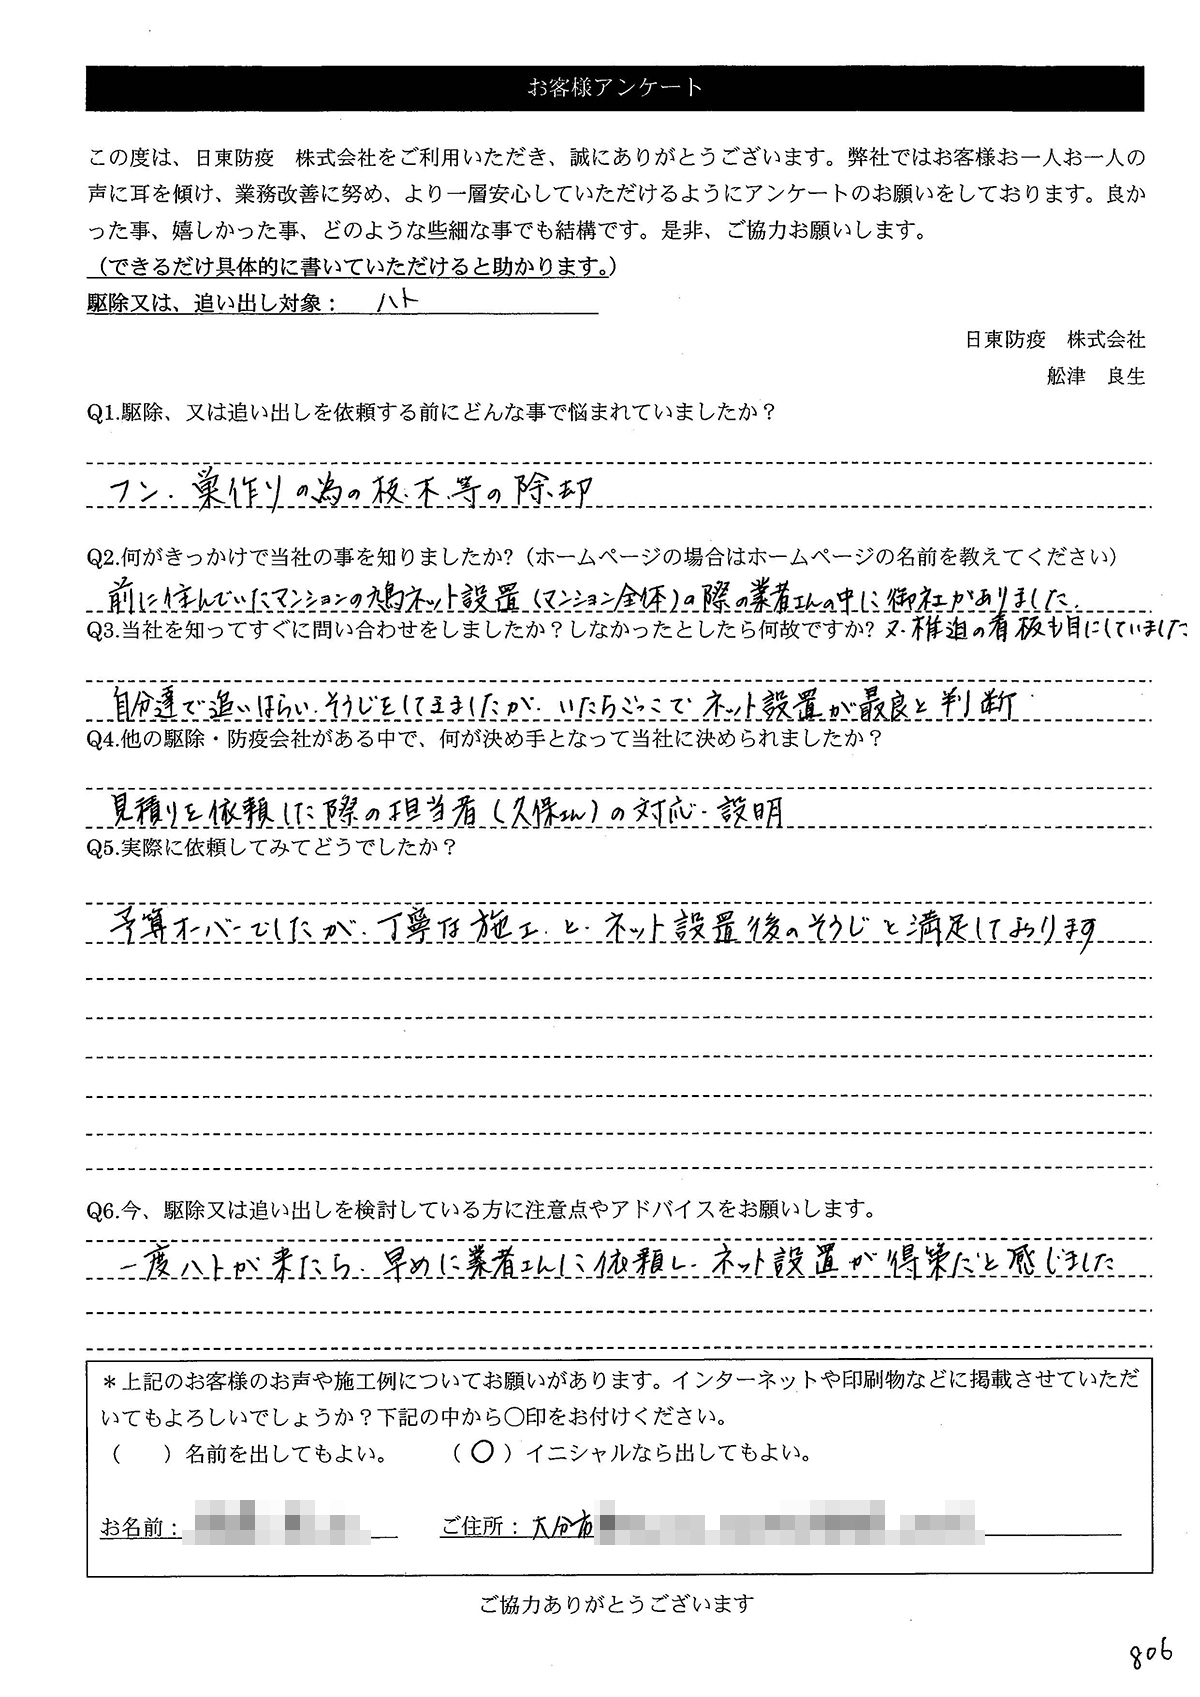 お客様アンケート
この度は、日東防疫　株式会社をご利用いただき、誠にありがとうございます。弊社ではお客様お一人お一人の
声に耳を傾け、業務改善に努め、より一層安心していただけるようにアンケートのお願いをしております。良か
った事、嬉しかった事、どのような些細な事でも結構です。是非、ご協力お願いします。
（できるだけ具体的に書いていただけると助かります。）
駆除又は、追い出し対象： ハト
日東防疫　株式会社
舩津　良生
Q1.駆除、又は追い出しを依頼する前にどんな事で悩まれていましたか？
フン、巣作りの為の枝、木、等の除却
Q2.何がきっかけで当社の事を知りましたか?（ホームページの場合はホームページの名前を教えてください）
前に住んでいたマンションの鳩ネット設置（マンション全体）の際の業者さんの中に御社がありました、
Q3.当社を知ってすぐに問い合わせをしましたか？しなかったとしたら何故ですか? 又、椎迫の看板も目にしていました
自分達で追いはらい、そうじをしてきましたが、いたちごっこでネット設置が最良と判断
Q4.他の駆除・防疫会社がある中で、何が決め手となって当社に決められましたか？
見積りを依頼した際の担当者（久保さん）の対応、説明
Q5.実際に依頼してみてどうでしたか？
予算オーバーでしたが、丁寧な施工、と、ネット設置後のそうじと満足しております
Q6.今、駆除又は追い出しを検討している方に注意点やアドバイスをお願いします。
一度ハトが来たら、早めに業者さんに依頼し、ネット設置が得策だと感じました
＊上記のお客様のお声や施工例についてお願いがあります。インターネットや印刷物などに掲載させていただ
いてもよろしいでしょうか？下記の中から〇印をお付けください。
（　　）名前を出してもよい。　（〇）イニシャルなら出してもよい。
お名前：　ご住所：大分市
ご協力ありがとうございます
806